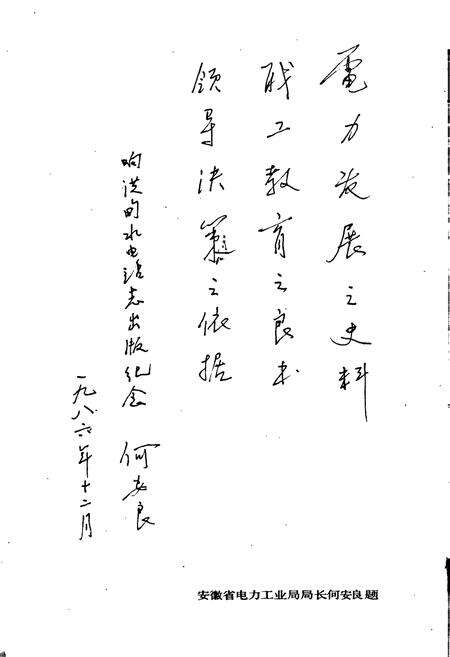 電力发展之史料
职工教育之良书
领导决策之依据
响洪甸水电站志出版纪念 何安良
一九八六年十二月
安徽省电力工业局局长何安良题